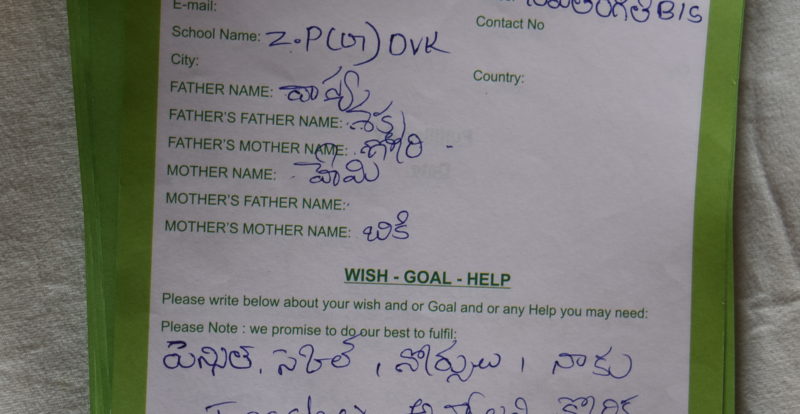 E-mail:
Contact No
School Name: Z.P(బా) DVK
City:
Country:
FATHER NAME:
FATHER'S FATHER NAME:
FATHER'S MOTHER NAME: గౌరి
MOTHER NAME: హేమి
MOTHER'S FATHER NAME:
MOTHER'S MOTHER NAME: బికి
WISH - GOAL - HELP
Please write below about your wish and or Goal and or any Help you may need:
Please Note : we promise to do our best to fulfil:
పెన్సిల్, సైకిల్, నోట్సులు, నాకు
Teacher అవ్వాలని కోరిక